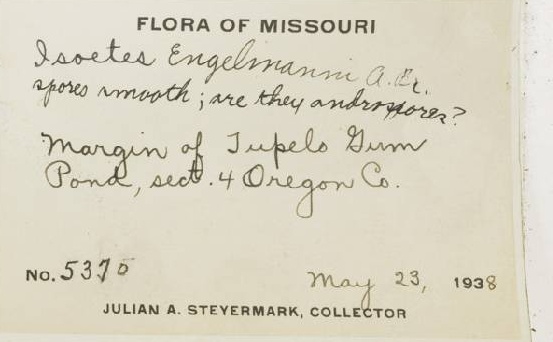 FLORA OF MISSOURI
Isoetes Engelmanni A. Br.
spores smooth; are they androspores?
Margin of Tupelo Gum
Pond, sect. 4 Oregon Co.
No. 5375 May 23, 1938
JULIAN A. STEYERMARK, COLLECTOR